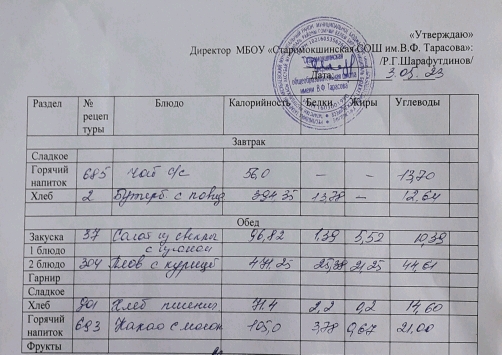 «Утверждаю»
Директор МБОУ «Старомокшинская СОШ им.В.Ф. Тарасова»:
/Р.Г.Шарафутдинов/
Дата: 3.05.23
Раздел № рецептуры Блюдо Калорийность Белки Жиры Углеводы
Завтрак
Сладкое
Горячий напиток 685 Чай б/с 56,0 – – 13,70
Хлеб 2 Бутерб с повид 394.35 13,78 – 12,64
Обед
Закуска 37 Салат из свеклы 96,82 1,39 5,52 10,39
1 блюдо
2 блюдо 304 Плов с курицей 471,25 25,38 21,25 44,61
Гарнир
Сладкое
Хлеб 701 Хлеб пшенич 71.4 2,2 0,2 14,60
Горячий напиток 693 Какао с молок 105,0 3,78 0,67 21,00
Фрукты